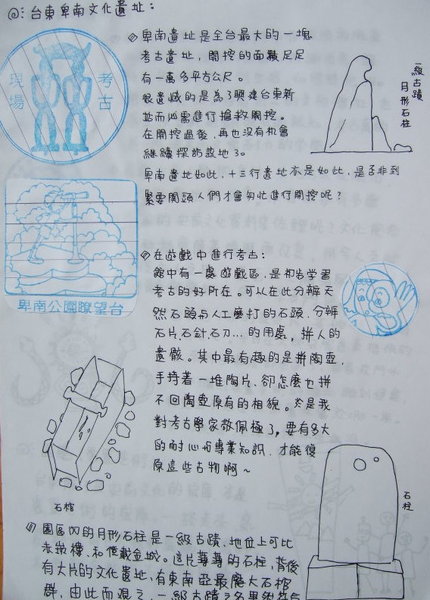 @:台東卑南文化遺址:
卑南遺址是全台最大的一塊
考古遺址,開挖的面積足足
有一萬多平方公尺。
很遺憾的是為了興建台東新
站而必需進行搶救開挖。
在開挖過後,再也沒有機會
繼續探訪故地了。
卑南遺址如此,十三行遺址亦是如此,是否非到
緊要關頭人們才會匆忙進行開挖呢?
一級古蹟
月形石柱
考古
現場
卑南公園瞭望台
在遊戲中進行考古:
館中有一處遊戲區,是相當學習
考古的好所在。可以在此分辨天
然石頭與人工磨打的石頭、分辨
石片、石針、石刀…的用處,拼人的
遺骸。其中最有趣的是拼陶壺,
手持著一堆陶片、卻怎麼也拼
不回陶壺原有的相貌。於是我
對考古學家敬佩極了,要有多大
的耐心與專業知識,才能復
原這些古物啊~
石棺
石柱
園區內的月形石柱是一級古蹟,地位上可比
赤崁樓、和億載金城。這片薄薄的石柱,背後
有大片的文化遺址,有東南亞最龐大石棺
群,由此而觀之,一級古蹟之名果然